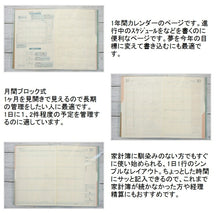 1年間カレンダーのページです。進
行中のスケジュールなどを書くのに
便利なページです。夢を今年の目
標に変えて書き込むにも最適で
す。
月間ブロック式
1ヶ月を見開きで見えるので長期
の管理をしたい人に最適です。
1日に1、2件程度の予定を管理す
るのに適しています。
家計簿に馴染みのない方でもすぐ
に使い始められる、1日1行のシン
プルなレイアウト。ちょっとした時間
にサッと記入できるので、これまで
家計簿が続かなかった方や経理
精算にもおすすめです。